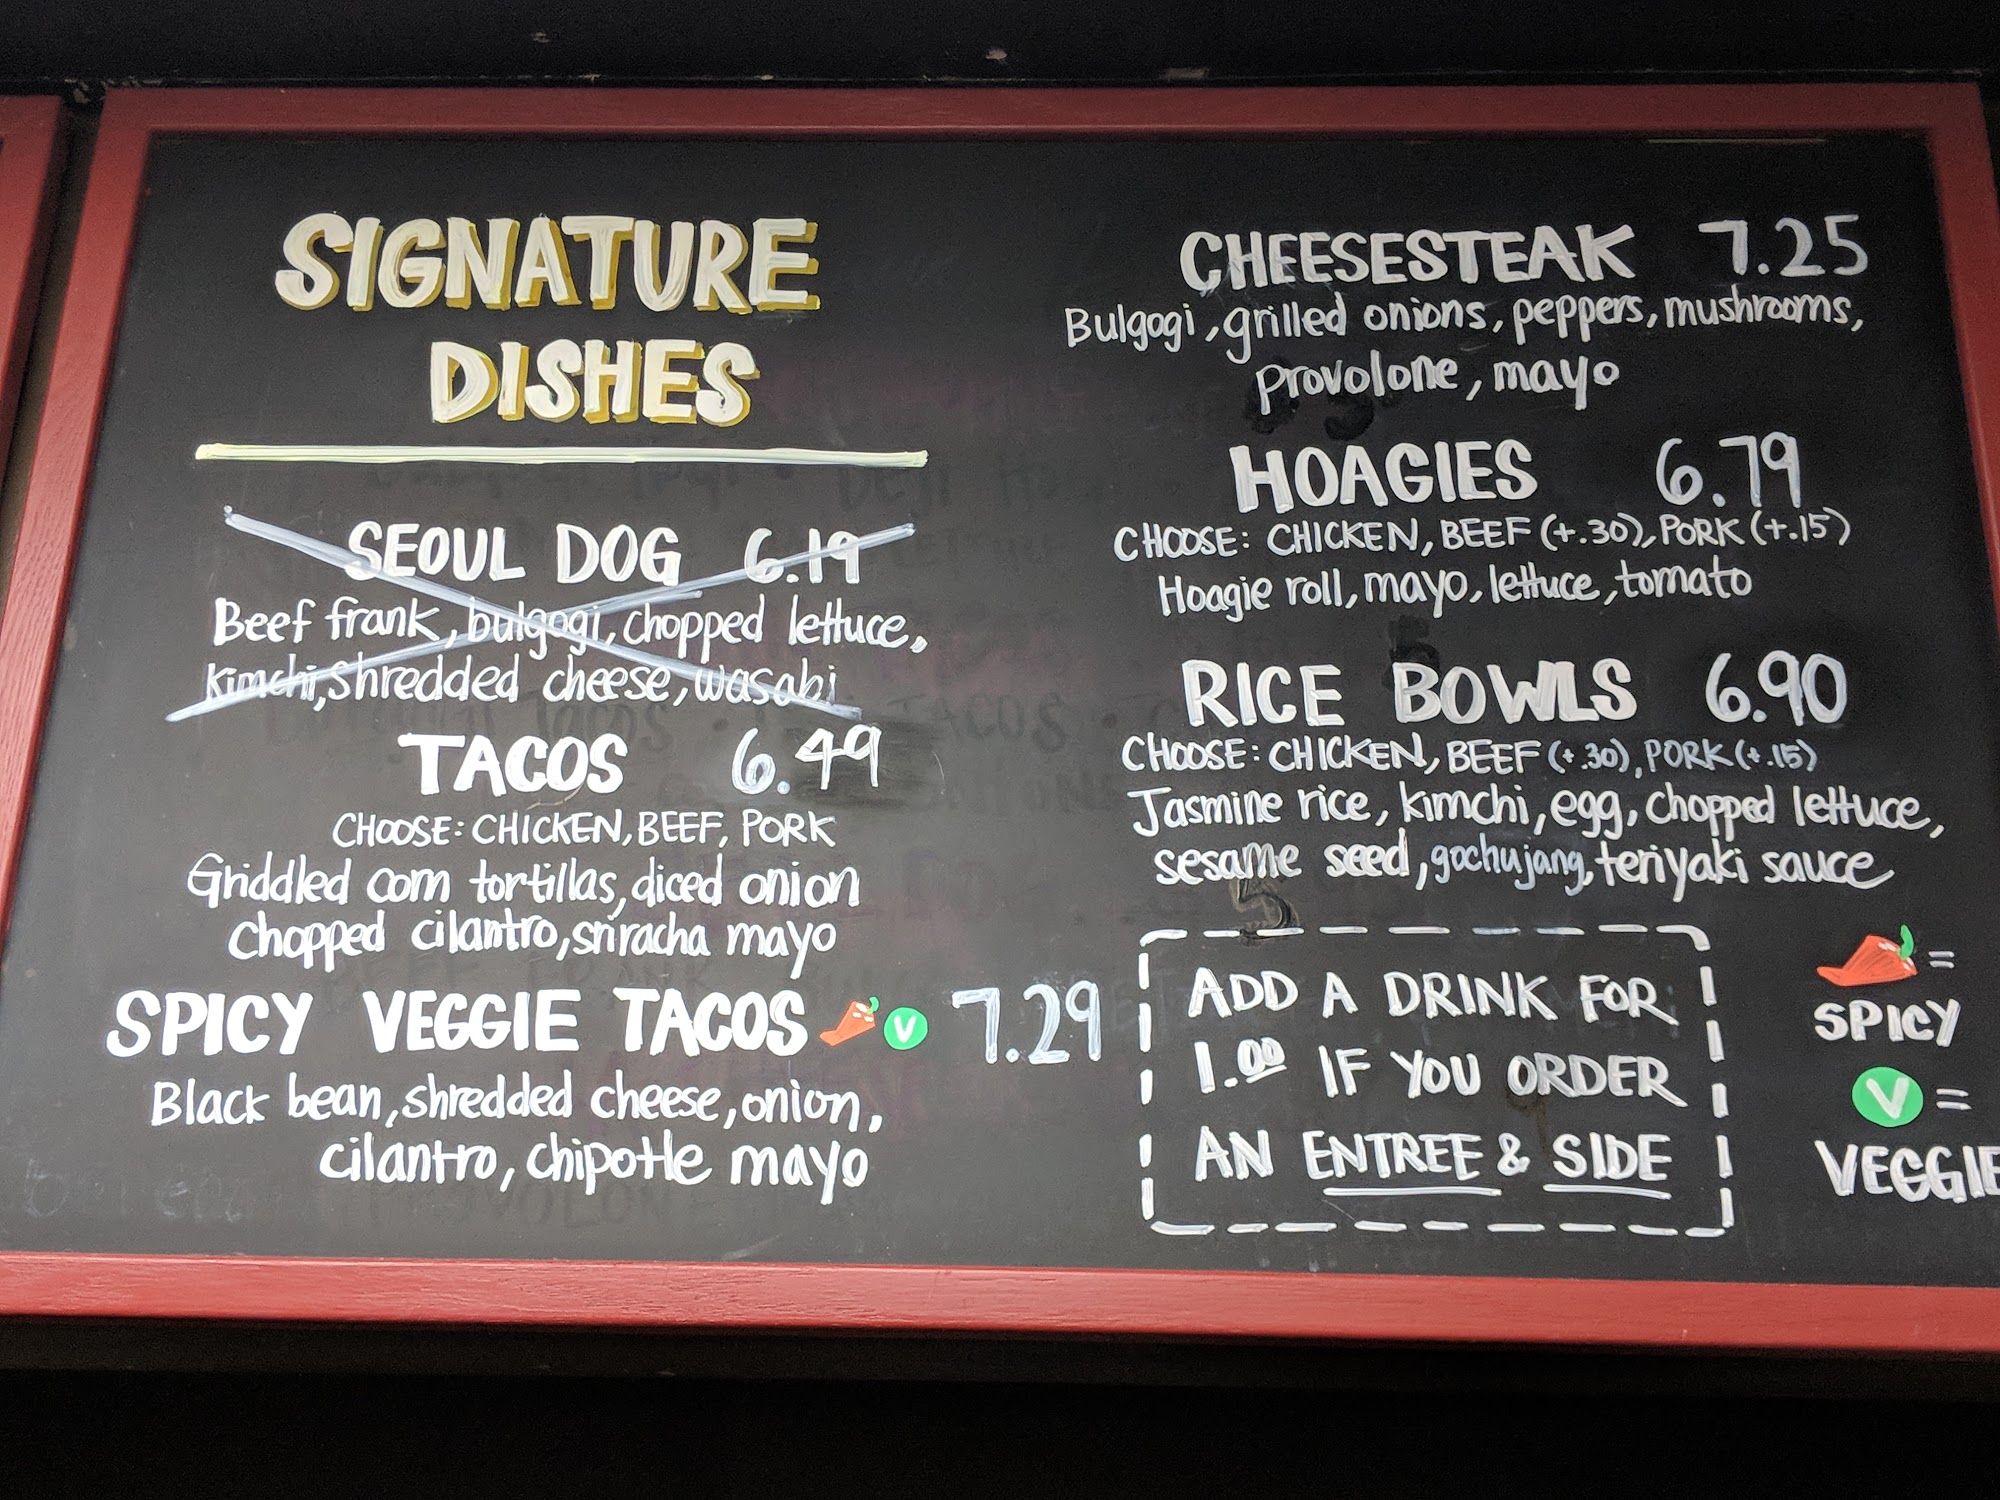 SIGNATURE
DISHES
SEOUL DOG 6.19
Beef frank, bulgogi, chopped lettuce,
Kimchi, shredded cheese, wasabi
TACOS 6.49
CHOOSE: CHICKEN, BEEF, PORK
Griddled corn tortillas, diced onion
chopped cilantro, sriracha mayo
SPICY VEGGIE TACOS V 7.29
Black bean, shredded cheese, onion,
cilantro, chipotle mayo
CHEESESTEAK 7.25
Bulgogi, grilled onions, peppers, mushrooms,
provolone, mayo
HOAGIES 6.79
CHOOSE: CHICKEN, BEEF (+.30), PORK (+.15)
Hoagie roll, mayo, lettuce, tomato
RICE BOWLS 6.90
CHOOSE: CHICKEN, BEEF (+.30), PORK (+.15)
Jasmine rice, kimchi, egg, chopped lettuce,
sesame seed, gochujang, teriyaki sauce
ADD A DRINK FOR
1.00 IF YOU ORDER
AN ENTREE & SIDE
=
SPICY
V =
VEGGIE